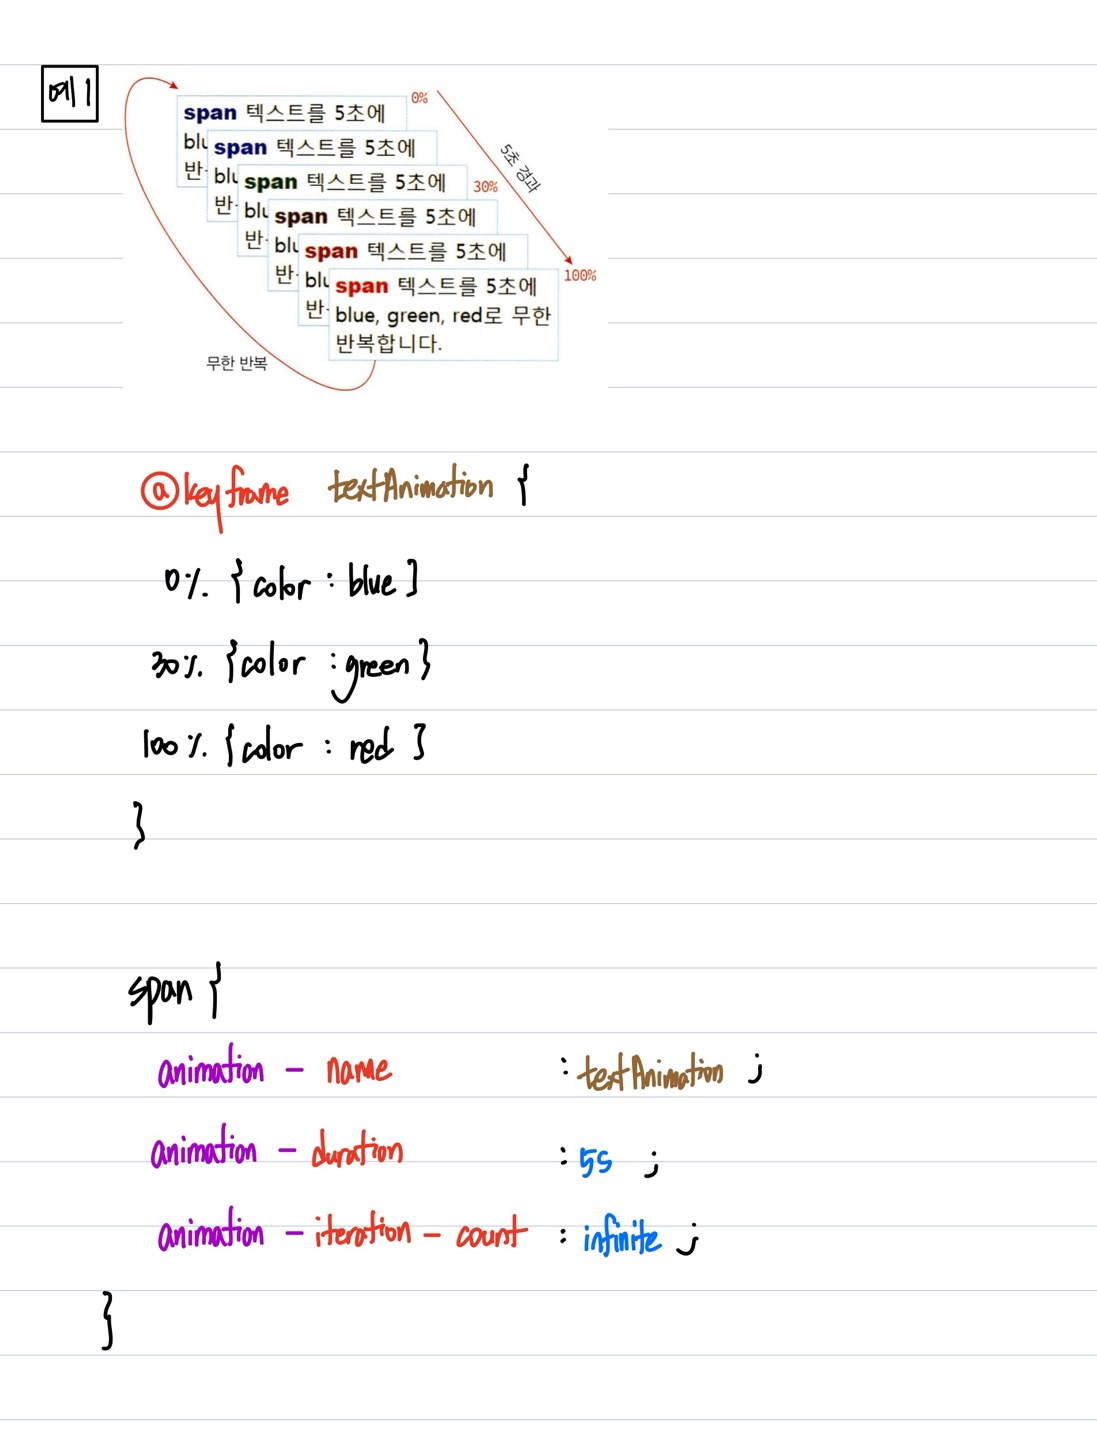 예1
span 텍스트를 5초에
0%
blu
span 텍스트를 5초에
반
blu
span 텍스트를 5초에
30%
5초 경과
반
blu
span 텍스트를 5초에
반
blu
span 텍스트를 5초에
반
blu
span 텍스트를 5초에
100%
반
blue, green, red로 무한
반복합니다.
무한 반복
@keyframe textAnimation {
0% {color : blue}
30% {color : green}
100% {color : red }
}
span {
animation - name : textAnimation ;
animation - duration : 5s ;
animation - iteration - count : infinite ;
}